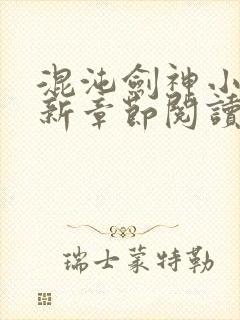 混沌劍神小
新章節閱讀
瑞士蒙特勒